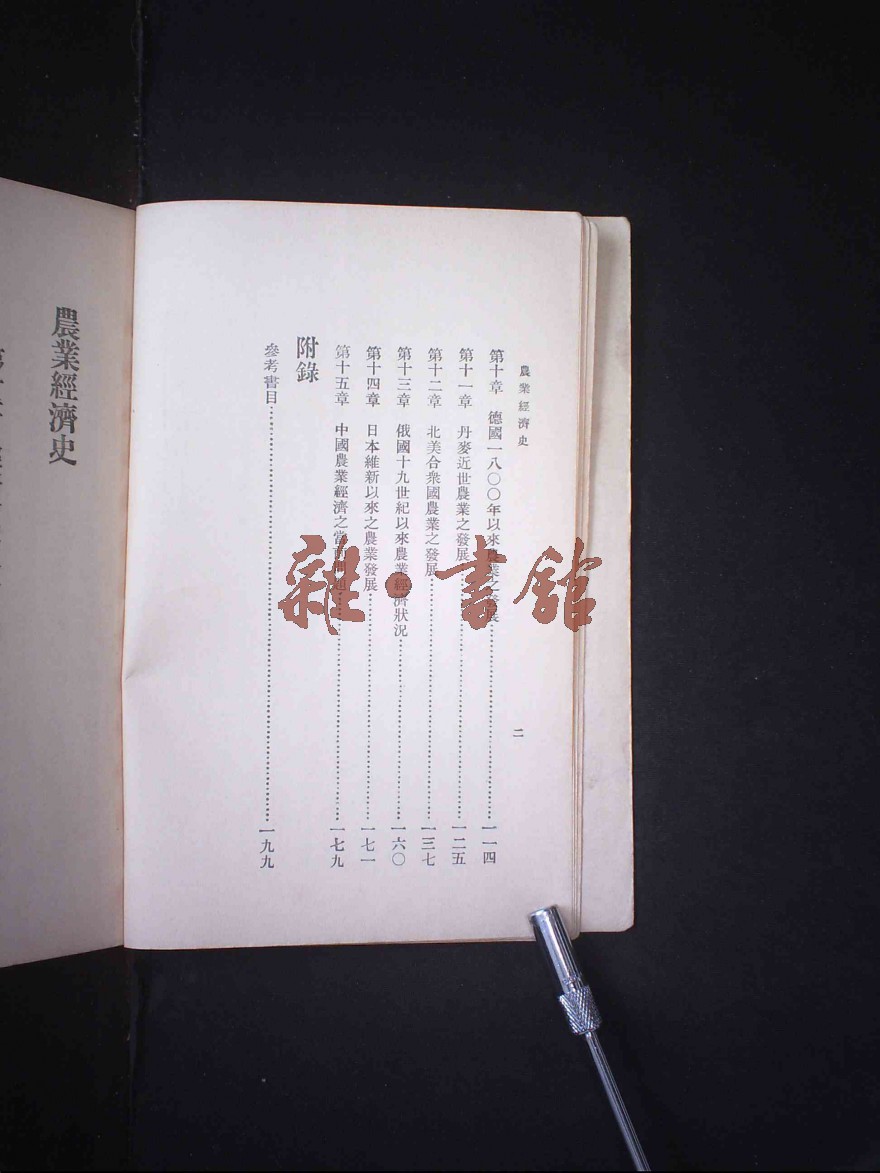 農業經濟史
二
第十章 德國一八〇〇年以來農業之發展⋯⋯一一四
第十一章 丹麥近世農業之發展⋯⋯一二五
第十二章 北美合衆國農業之發展⋯⋯一三七
第十三章 俄國十九世紀以來農業經濟狀況⋯⋯一六〇
第十四章 日本維新以來之農業發展⋯⋯一七一
第十五章 中國農業經濟之當面問題⋯⋯一七九
附錄
參考書目⋯⋯一九九
農業經濟史
雜·書館